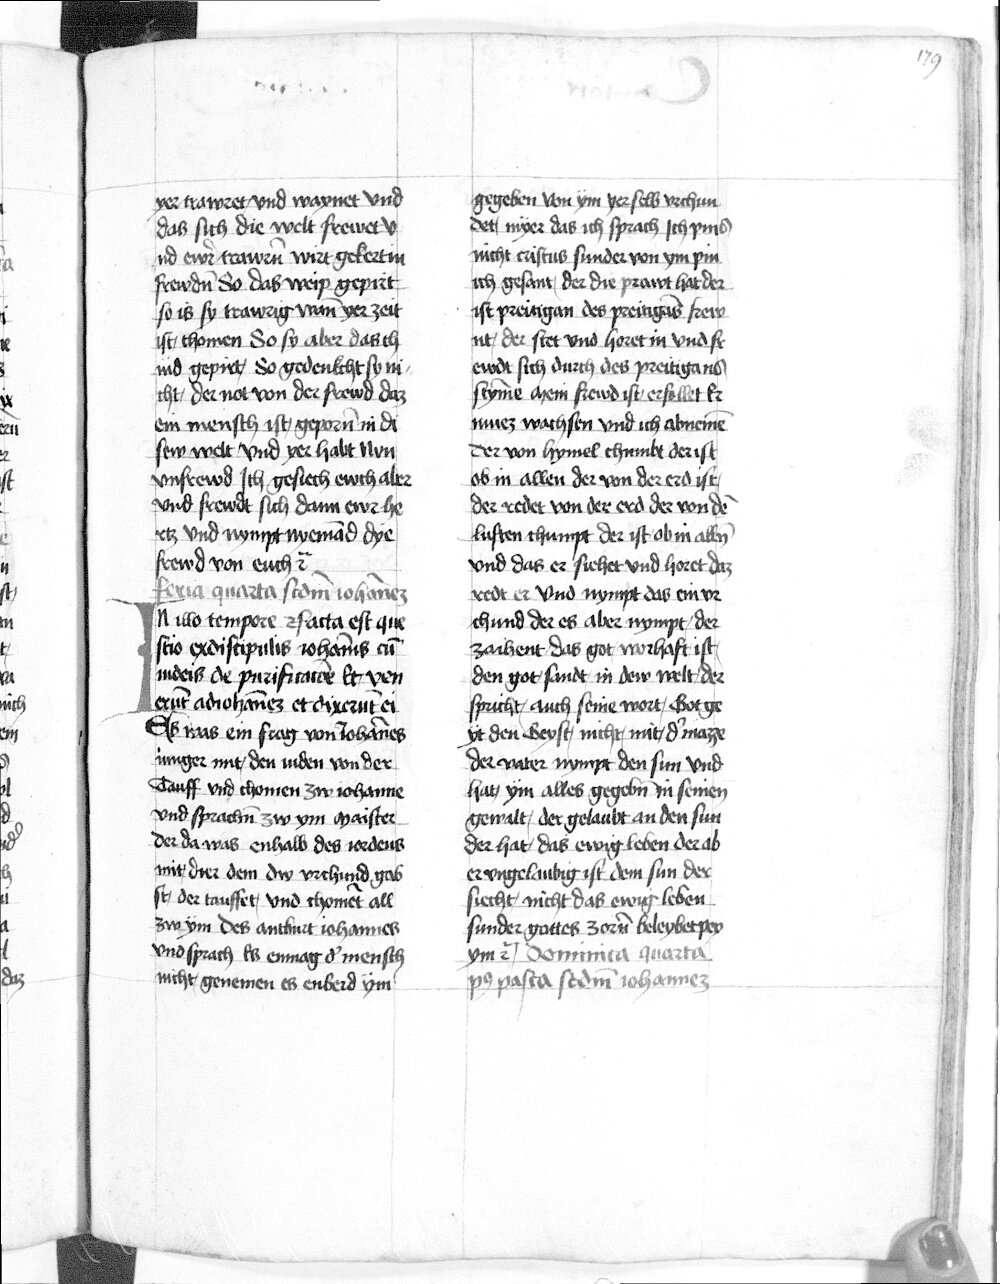 179
yer trawret vnd waynet vnd
das sich die welt frewet v
nd ewr̄ trawrn̄ wirt gekert in
frewdn̄ So das weip gepirt
so is sy trawrig wan̄ yer zeit
ist chomen So sy aber das ch
ind gepirt So gedenkcht sy ni
cht der not von der frewd daz
ein mensch ist geporn̄ in di
sew welt vnd yer habt Nvn
vnfrewd Ich gesiech ewch aber
vnd frewdt sich dann ewr he
rtz vnd nympt nyemād dye
frewd von euch
feria quarta scdm̄ iohānez
In illo tempore facta est que
stio ex discipulis iohānis cū
iudeis de purificacōe Et ven
erūt ad iohānez et dixerūt ei
Es was ein frag von Iohānes
iunger mit den iuden von der
Tauff vnd chomen zw iohanne
vnd sprachn̄ zw ym Maister
der da was enhalb des iordens
mit dier dem dw vrchund gab
st der tauffet vnd chomēt all
zw ÿm Des antburt iohannes
vnd sprach Es enmag d' mensch
nicht genemen es enberd ÿm
gegeben von ÿm yer selb vrchun
det myer das ich sprach Ich pins
nicht cristus sunder von ym pin
ich gesant der die prawt hat der
ist preitigan des preitigans frew
nt der stet vnd horet in vnd fr
ewdt sich durch des preitigans
stym̄e Mein frewd ist erfullet Er
muez wachsen vnd ich abnemē
Der von hymel chumbt der ist
ob in allen der von der erd ist
der redet von der erd der von dē
luften chumpt der ist ob in alln̄
vnd das er siehet vnd horet daz
redt er vnd nympt das ein vr
chund der es aber nympt der
zaihent das got worhaft ist
den got sandt in dew welt der
spricht auch seine wort Got ge
yt den Geyst nicht mit d' mazze
der vater nympt den sun vnd
hat ÿm alles gegebn̄ in seinen
gewalt der gelaubt an den sun
der hat das ewig leben der ab
er vngelaubig ist dem sun der
siecht nicht das ewig leben
sunder gottes zorn̄ beleybet pey
ym Dominica quarta
p9 pasca scdm̄ iohannez